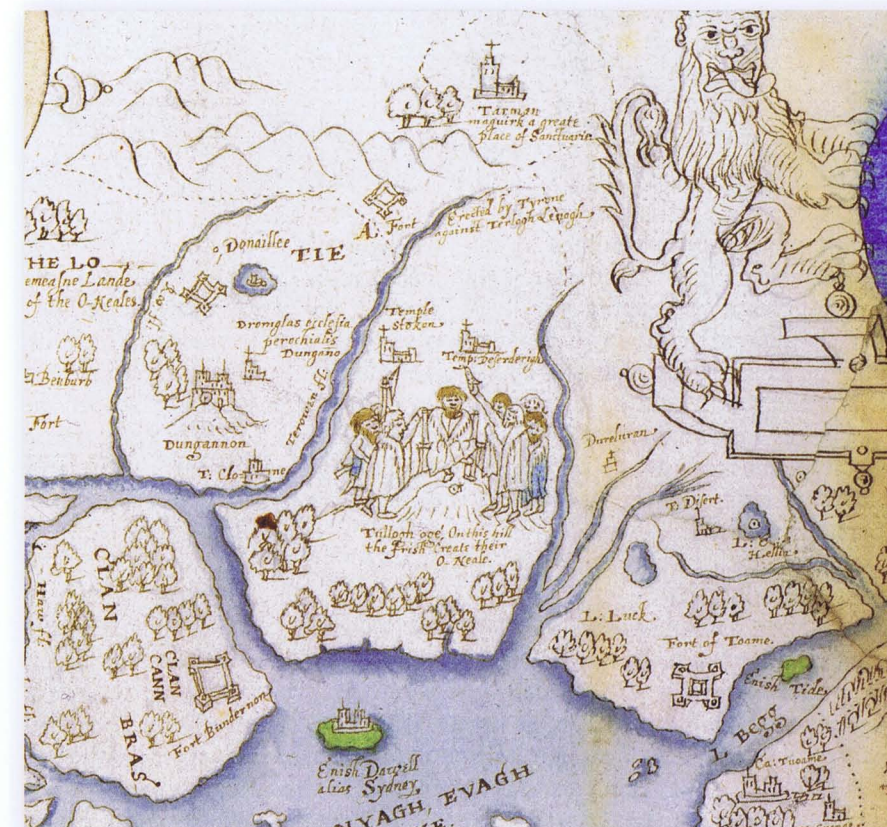 Tarman
maguirk a greate
place of Sanctuarie
A Fort
Erected by Tyrone
against Terlogh Lenogh
Donaillee
TIE
HE LO
emeasne Lande
of the O-Neales
Dromglas ecclesia
perochialis
Dungano
Temple
Stoken
Temp: Deserderigh
Benburb
Fort
Dungannon
T: Clo ne
Tillogh oge, On this hill
the Irish Creats their
O-Neale.
Dureluran
T: Disert
L: Luck
Fort of Toame
Enish Tide
CLAN
BRAS
CLAN
CANN
Fort Bundernon
Enish Darell
alias Sydney
L Begg
Ca: Tuoame
NYAGH, EVAGH